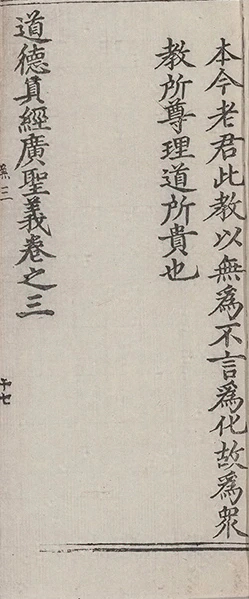 本今老君此教以無為不言為化故為衆
教所尊理道所貴也
道德真經廣聖義卷之三